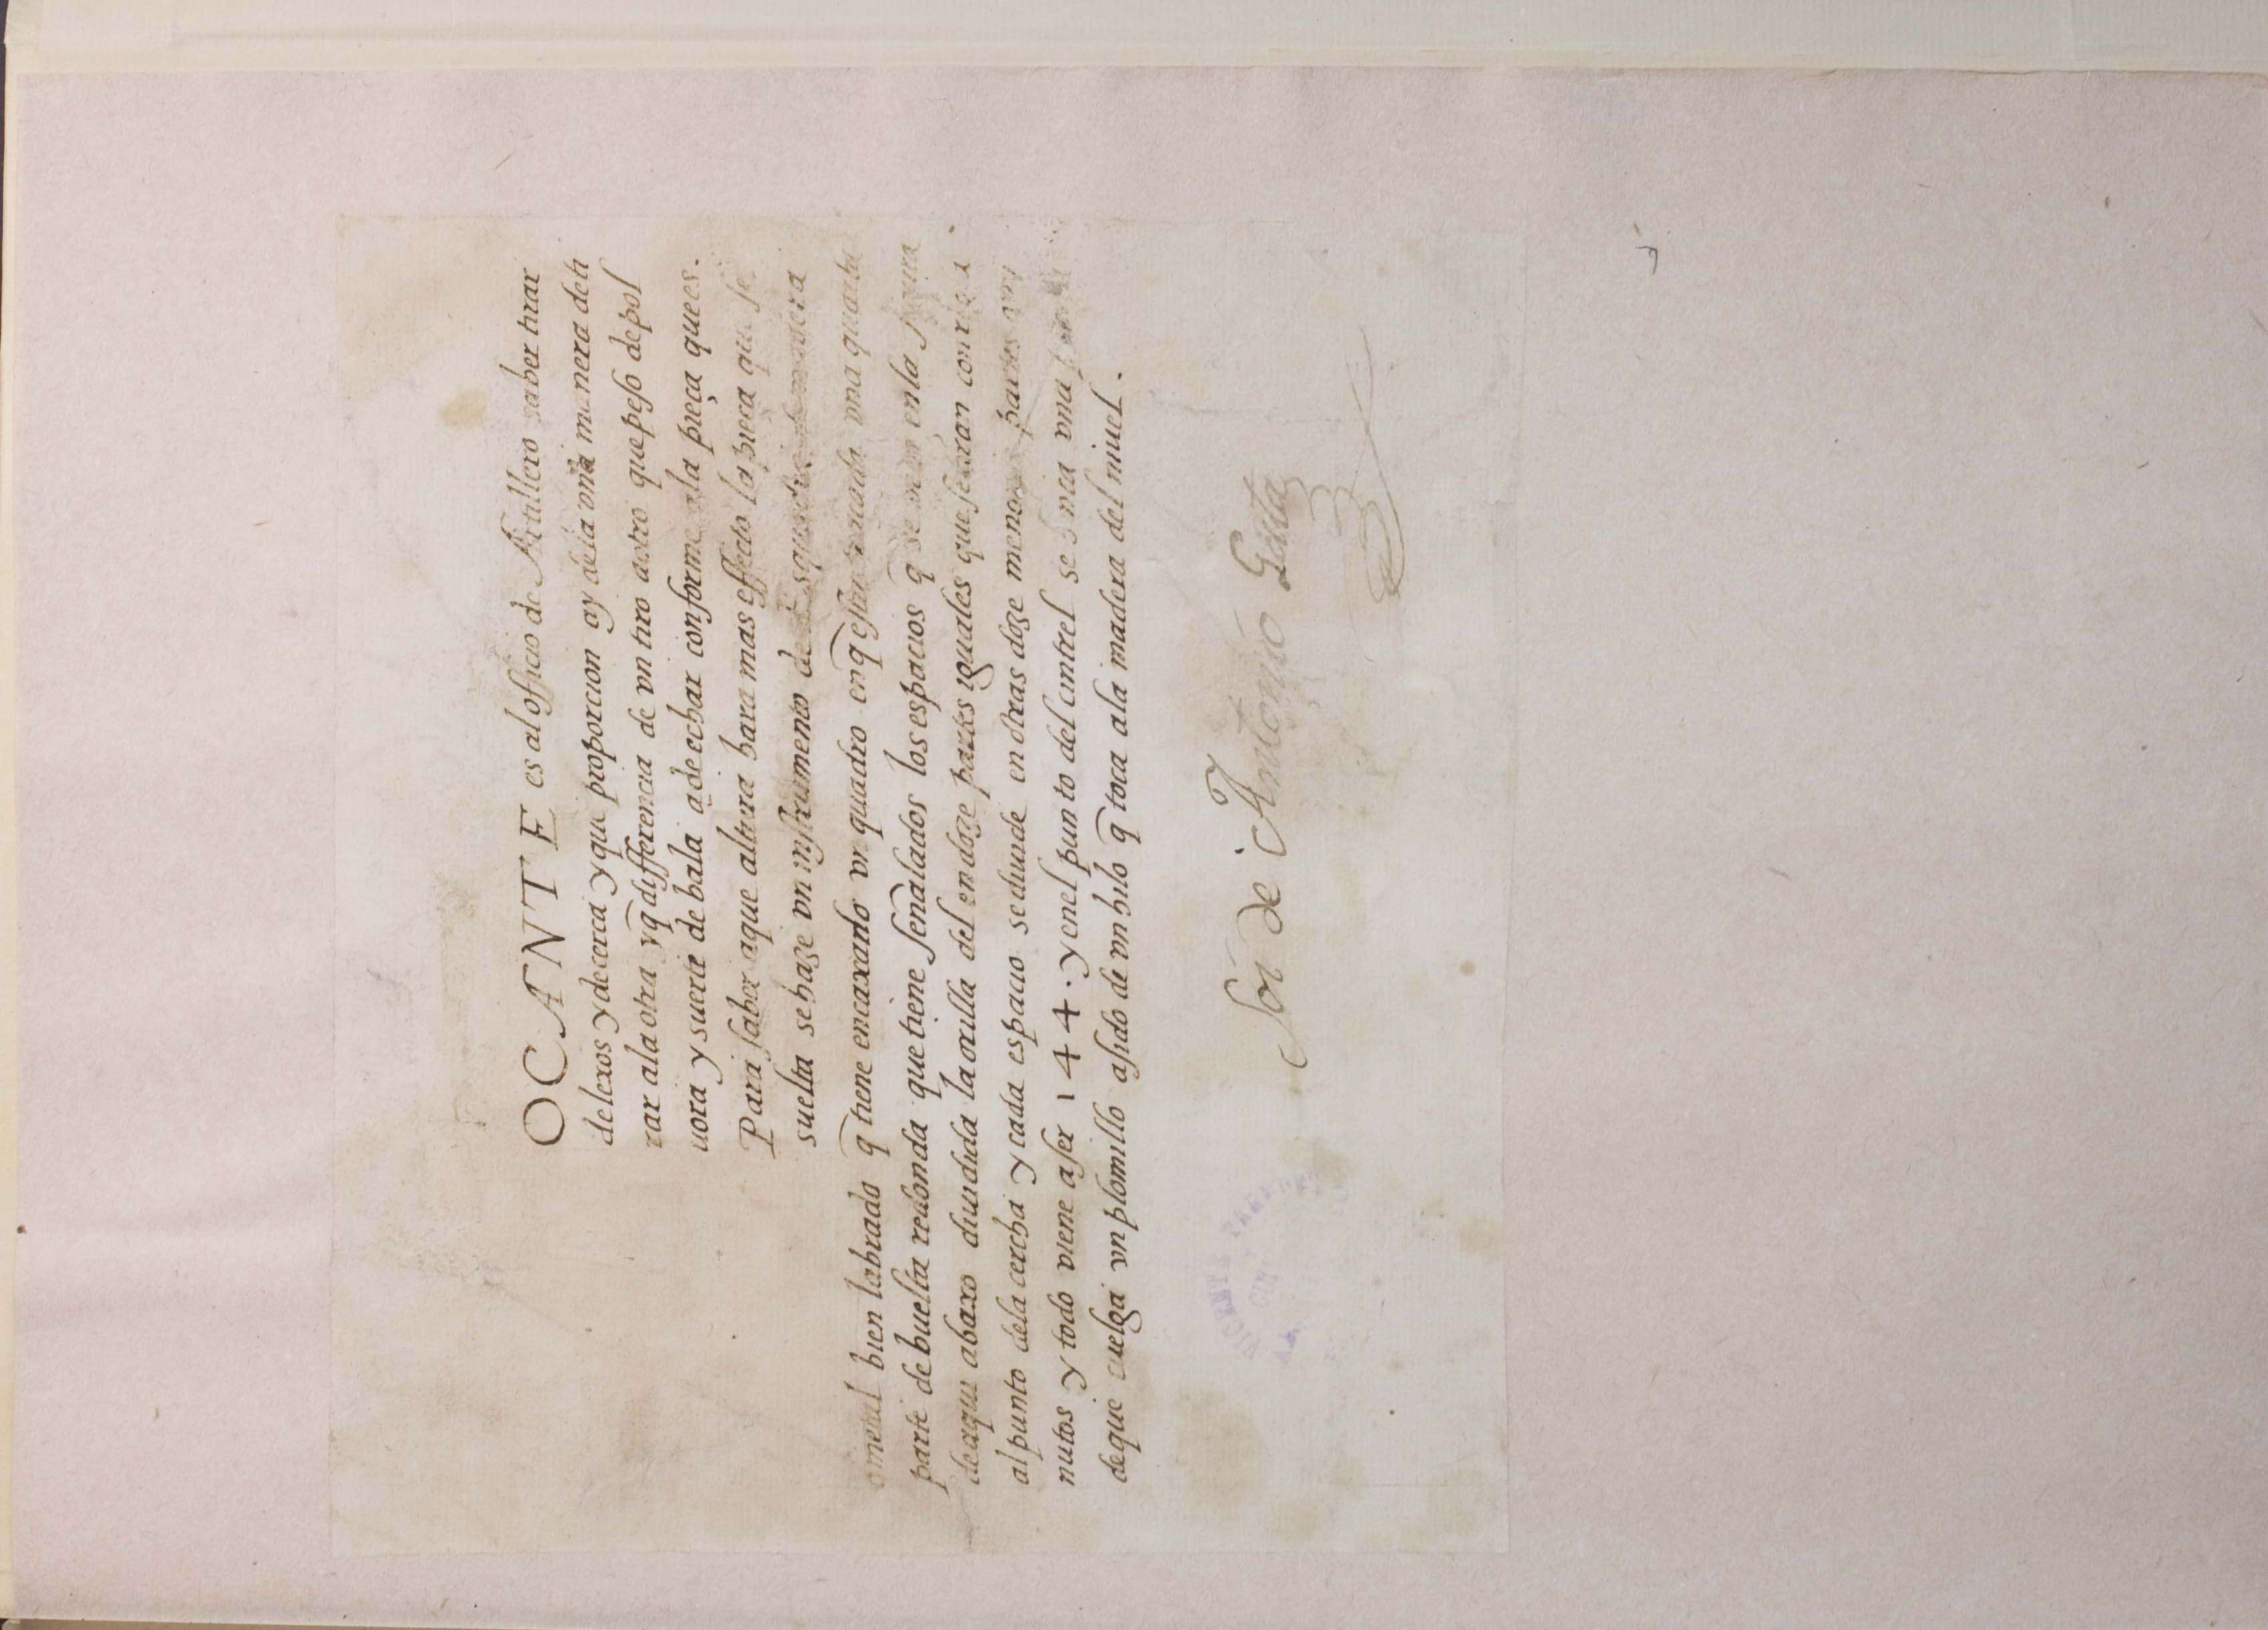 OCANTE es al officio de Artillero saber tirar
de lexos y de cerca y que proporcion ay de la vna manera de ti
rar ala otra y q̃ differencia de vn tiro a otro que peso de pol
uora y suerte de bala a de echar conforme ala pieça que es.
Para saber a que altura hara mas effecto la pieça que se
suelta se haze vn instrumento de madera
o metal bien labrado q̃ tiene encaxado vn quadro en q̃ esta vna quarta
parte de buelta redonda que tiene señalados los espacios q̃ se en la figura
de aqui abaxo diuidida la orilla del en doze partes iguales que seran con
al punto de la cercha y cada espacio se diuide en otras doze menores partes o mi
nutos y todo viene a ser 144. y en el punto del cintrel se vna
de que cuelga vn plomillo asido de vn hilo q̃ toca ala madera del niuel.
Soi de Antonio
VICENTE